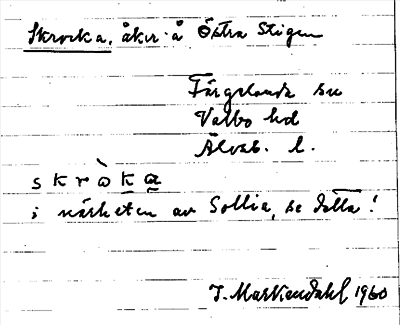 Skrocka, åker å Östra Stigen
Färgelanda sn
Valbo hd
Älvsb. l.
skròka
i närheten av Sollia, se detta!
J. Markendahl 1960